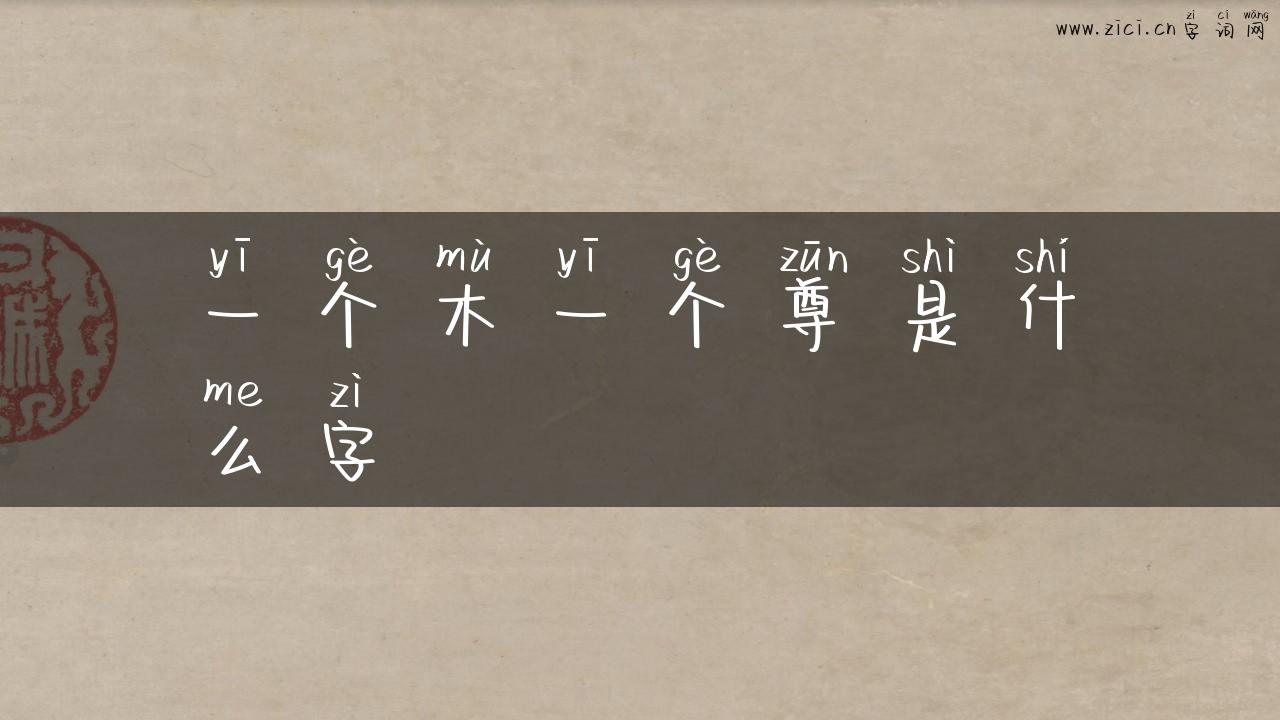 zì cí wǎng
www.zici.cn 字词网
yī gè mù yī gè zūn shì shí
一个木一个尊是什
me zì
么字